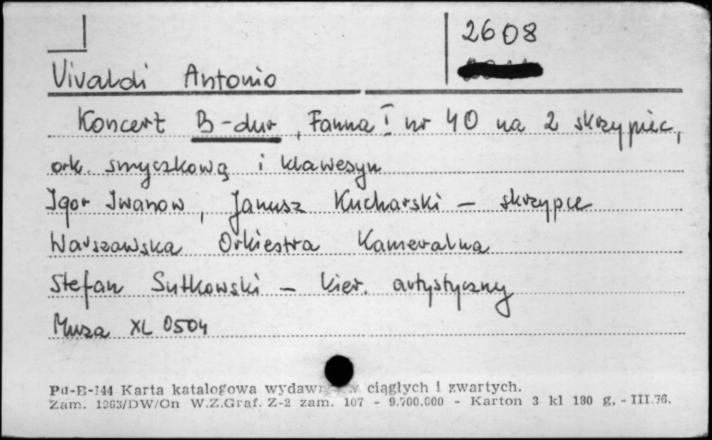 2608
Vivaldi Antonio
Koncert B-dur, Fanna I nr 40 na 2 skrzypiec,
ork. smyczkową i klawesyn
Igor Iwanow, Janusz Kucharski – skrzypce
Warszawska Orkiestra Kameralna
Stefan Sutkowski – kier. artystyczny
Muza XL 0504
Pu-B-144 Karta katalogowa ciągłych i zwartych.
Zam. 1263/DW/On W.Z.Graf. Z-2 zam. 107 - 9.700.000 - Karton 3 kl 180 g. - III.76.